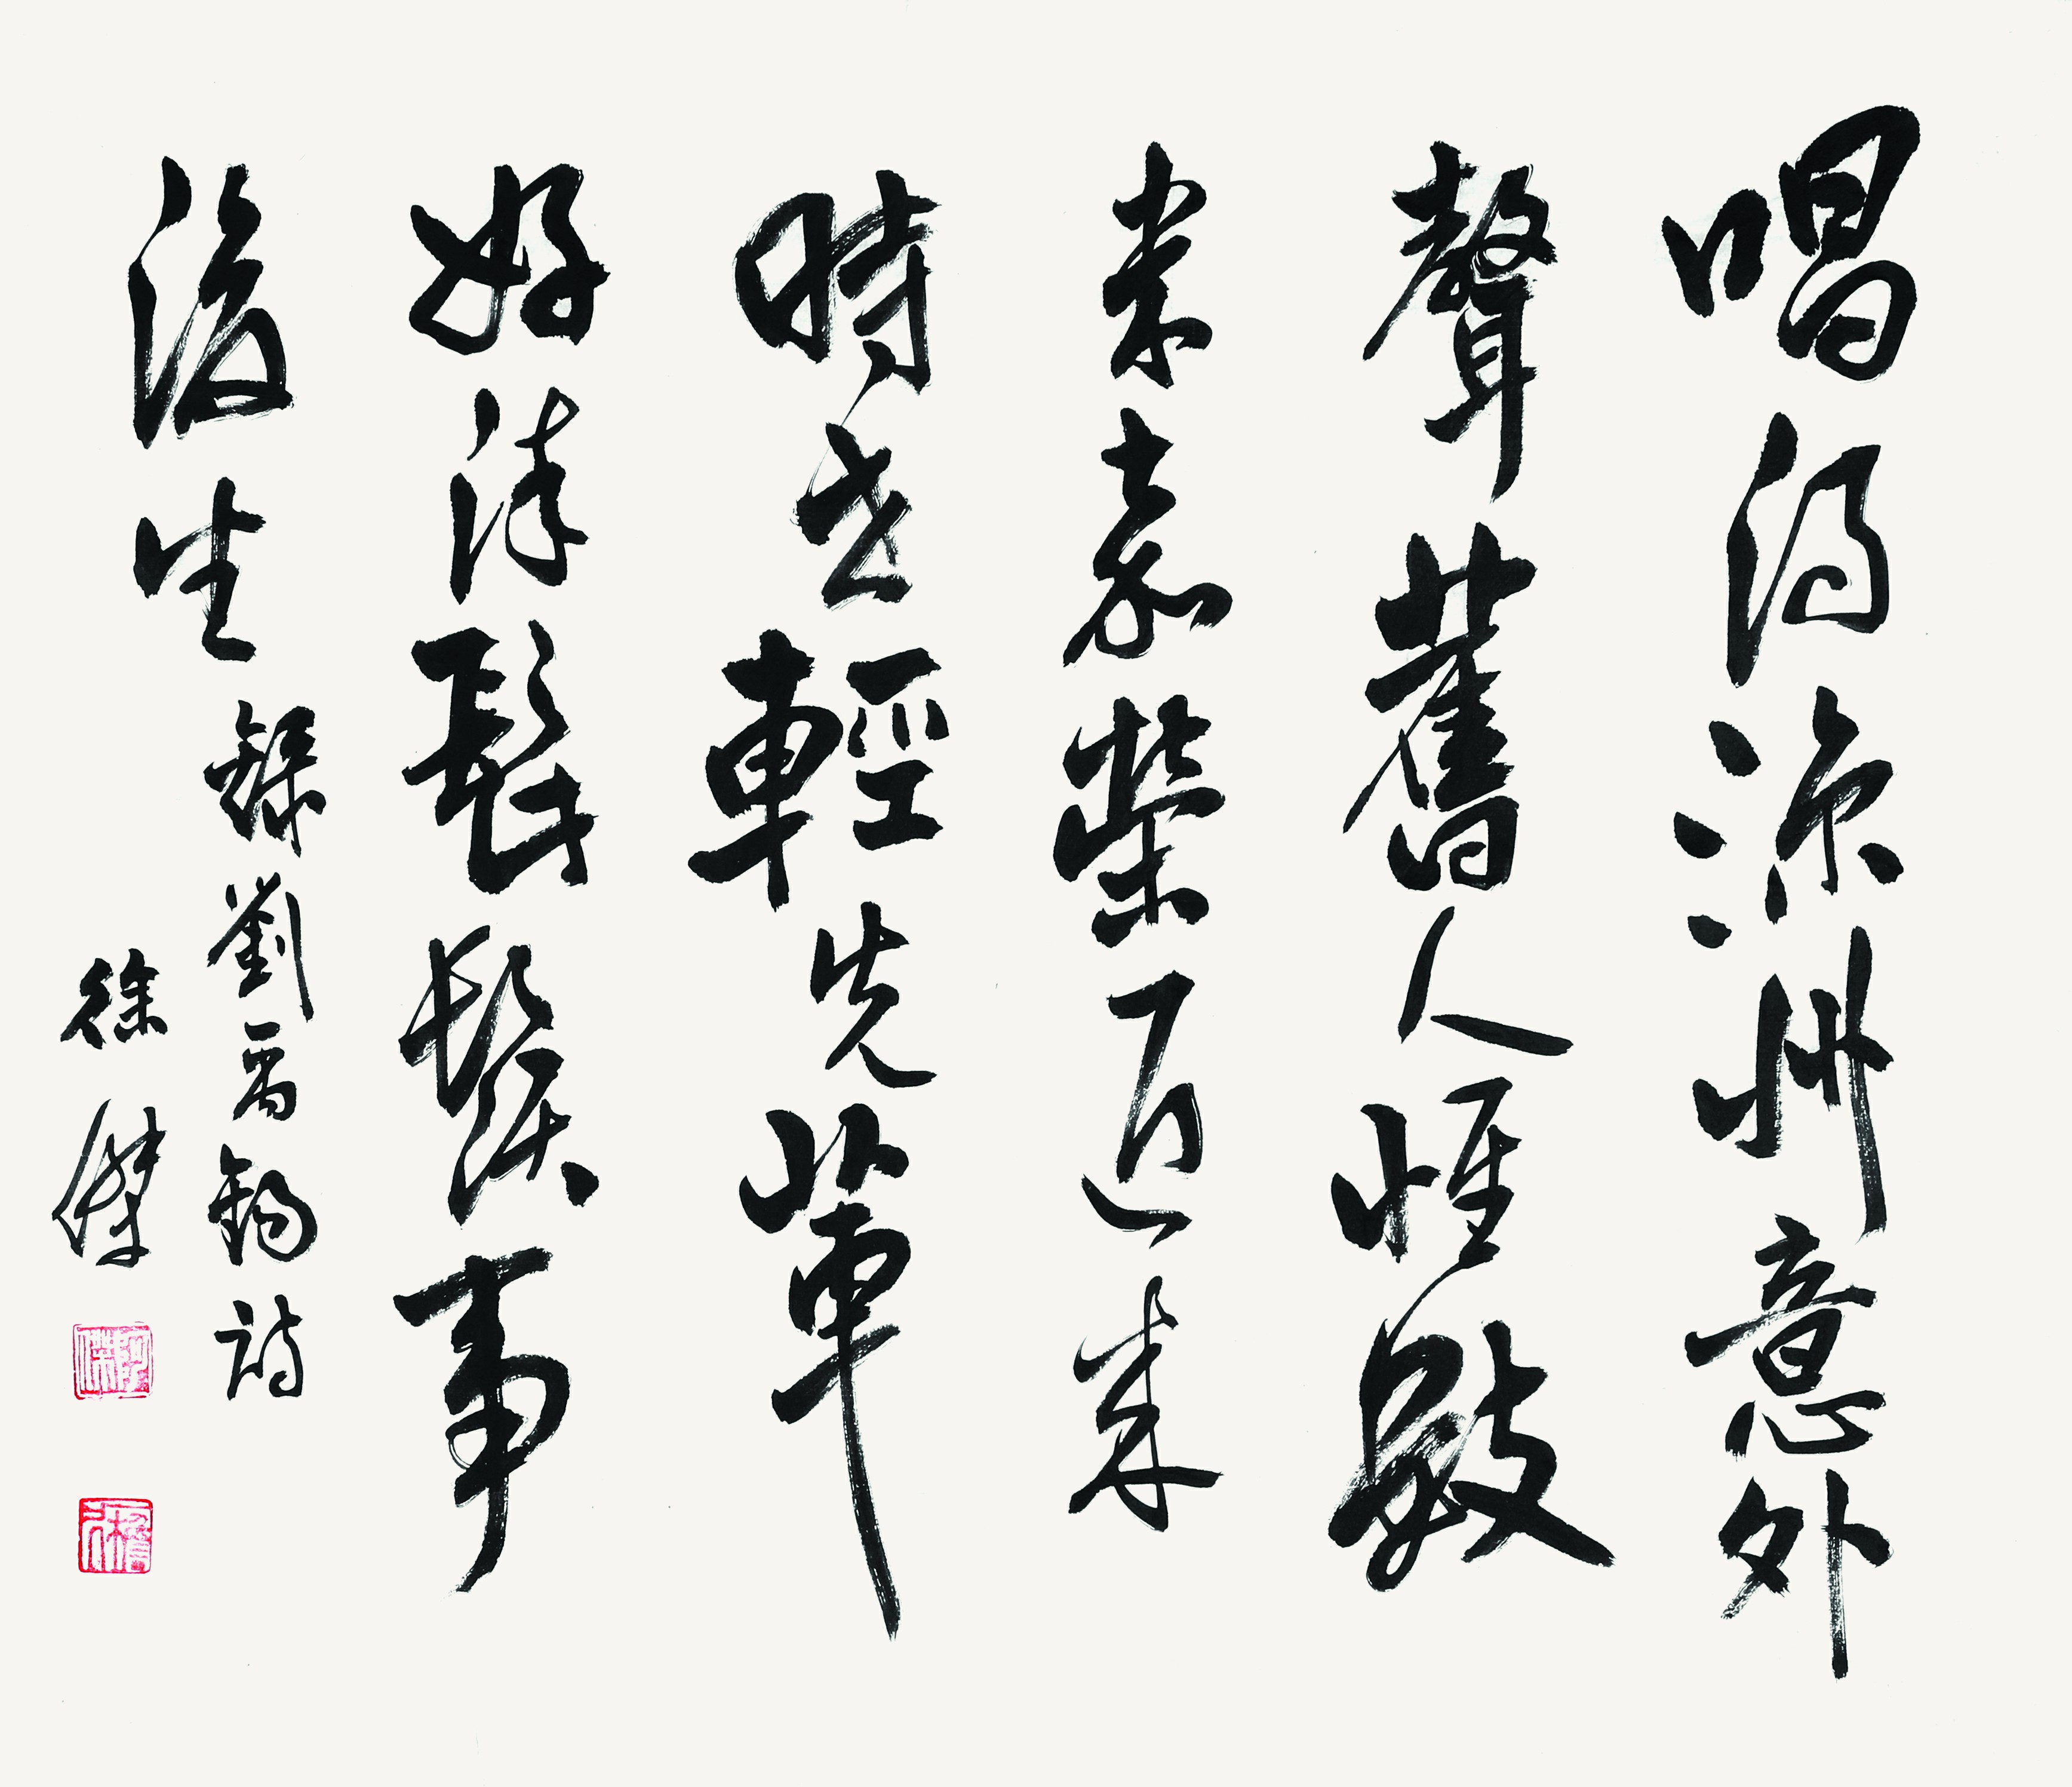 唱得涼州意外
聲舊人惟數
米嘉榮近來
時世輕先輩
好染髭鬚事
後生 錄劉禹錫詩
徐傑